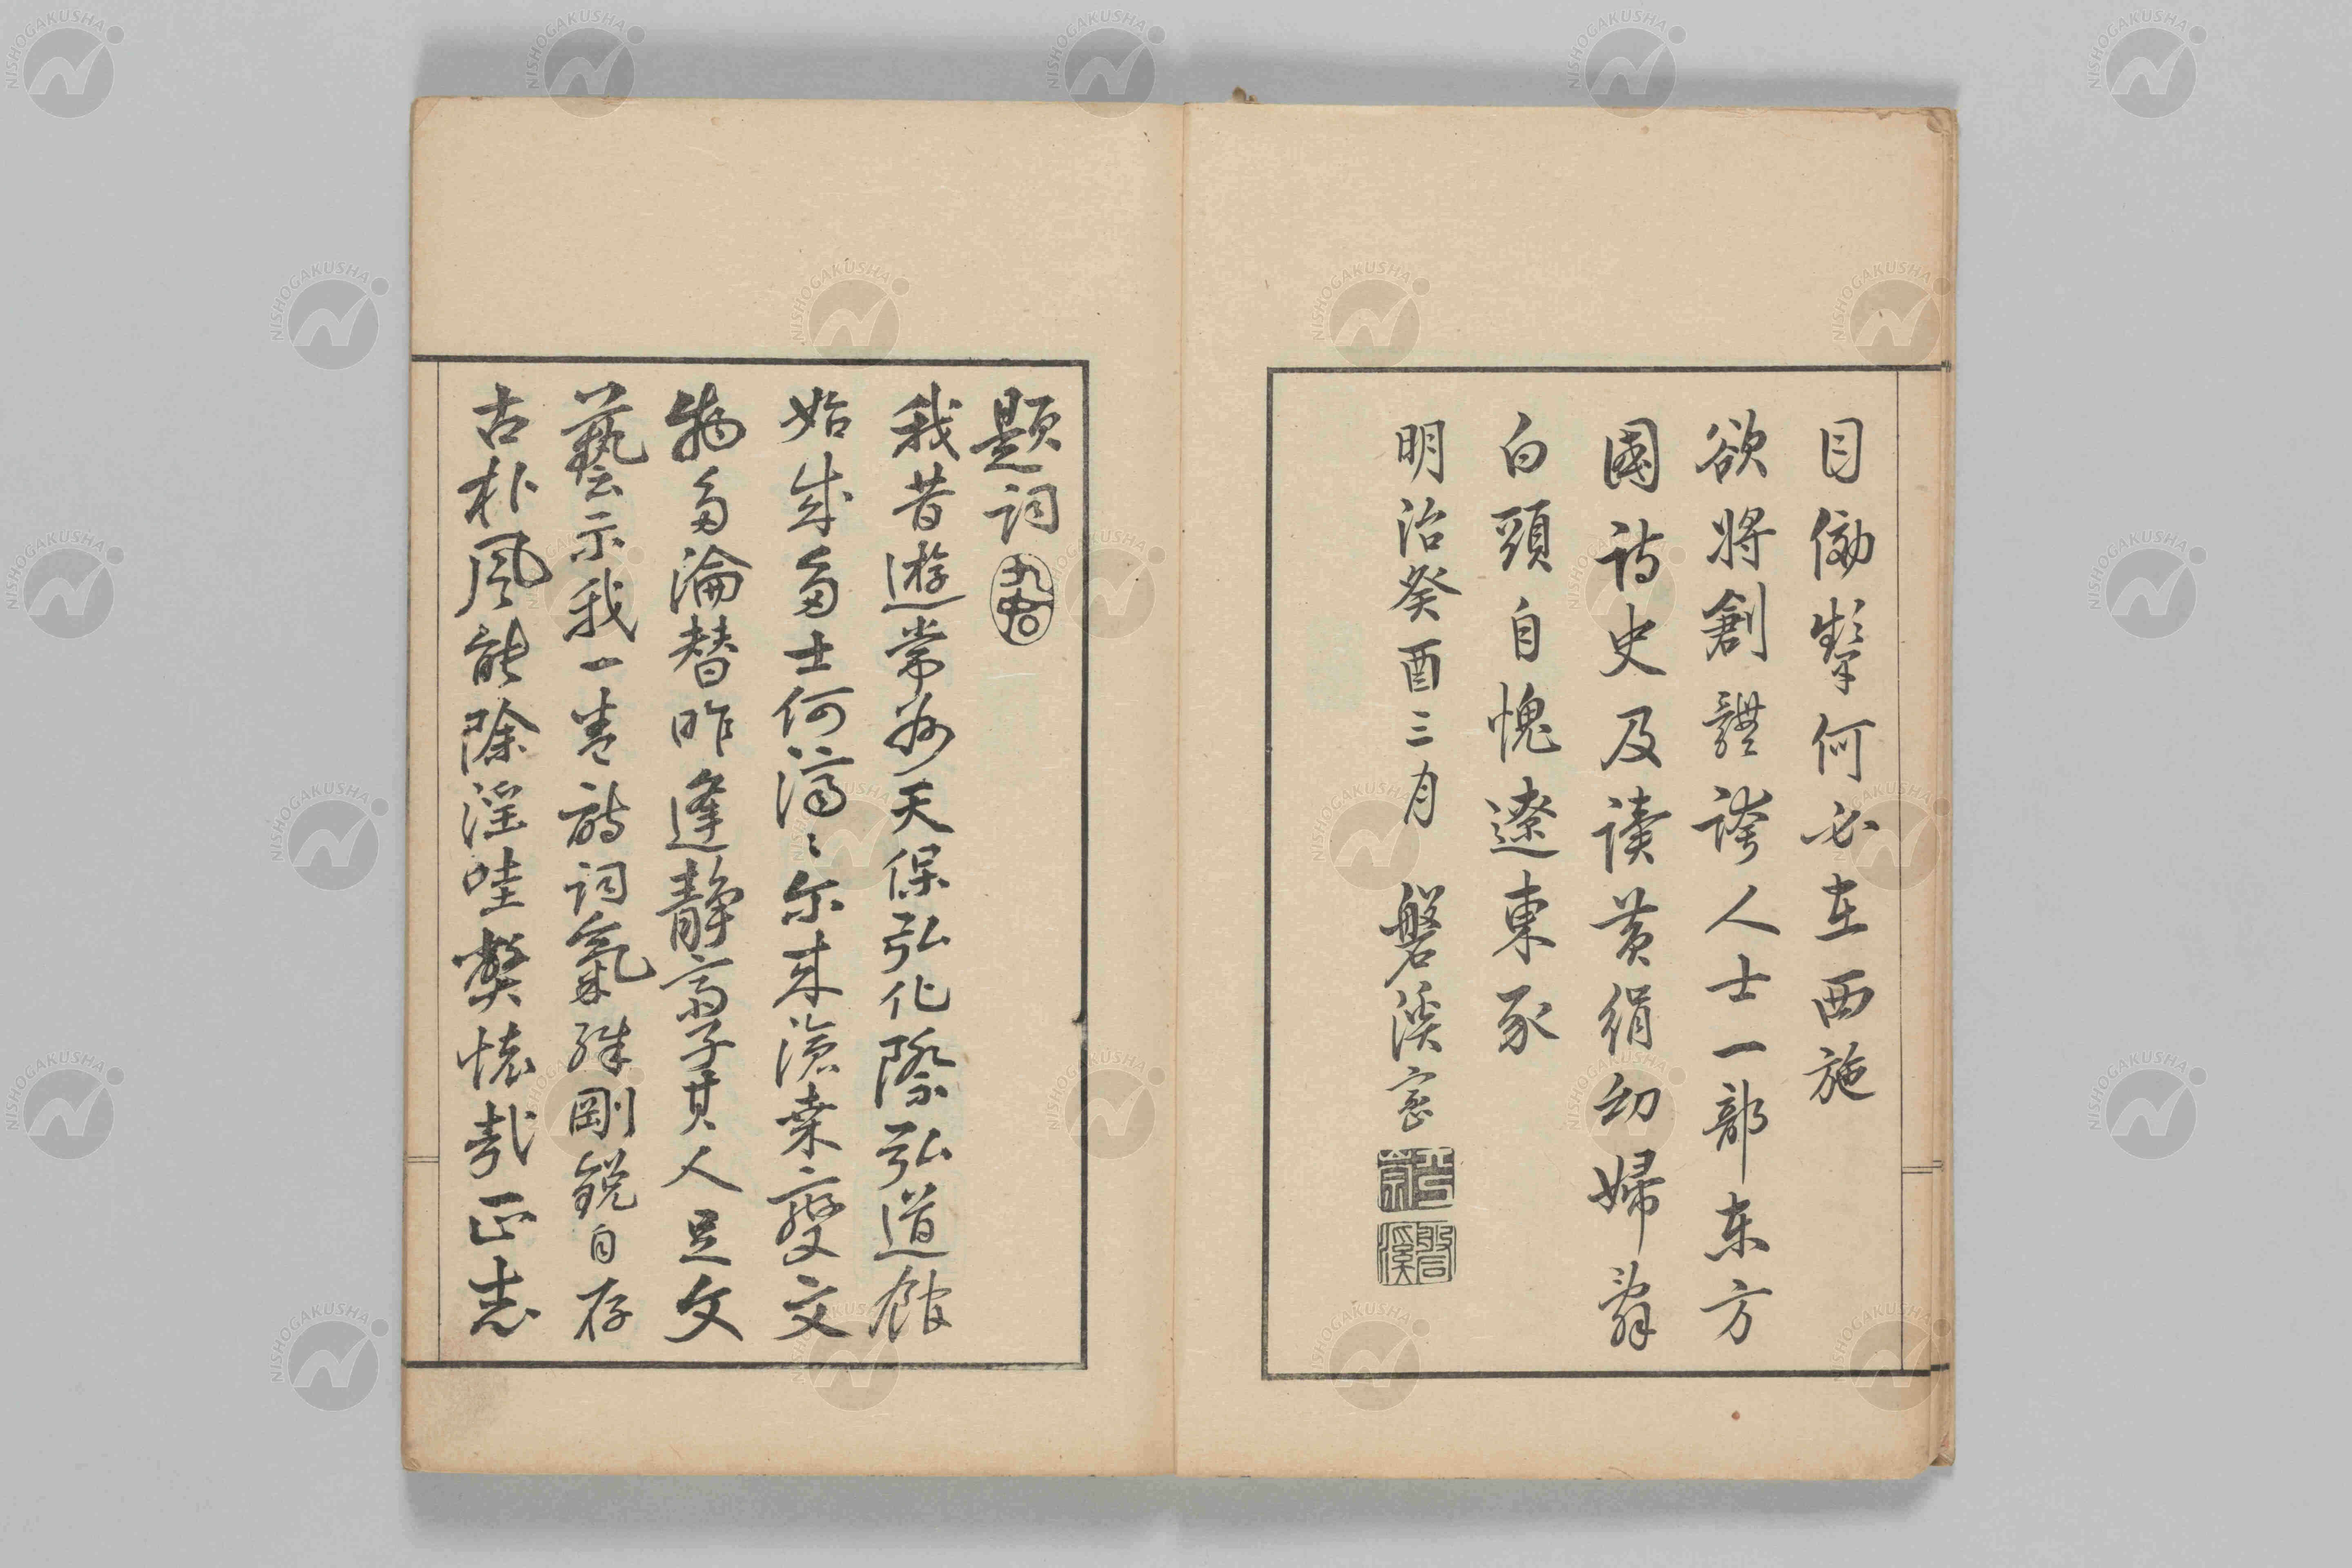 目倣顰何必在西施
欲將創體誇人士一部东方
國詩史及读黄絹幼婦辭
白頭自愧遼東豕
明治癸酉三月 磐溪崇
磐溪
題詞
我昔遊常州天保弘化際弘道館
始成多士何濟〻尔来滄桒變文
物多淪替昨逢静斎子其人足文
藝示我一巻詩词氣殊剛銳自存
古朴風能除淫哇弊懐哉正志
NISHOGAKUSHA